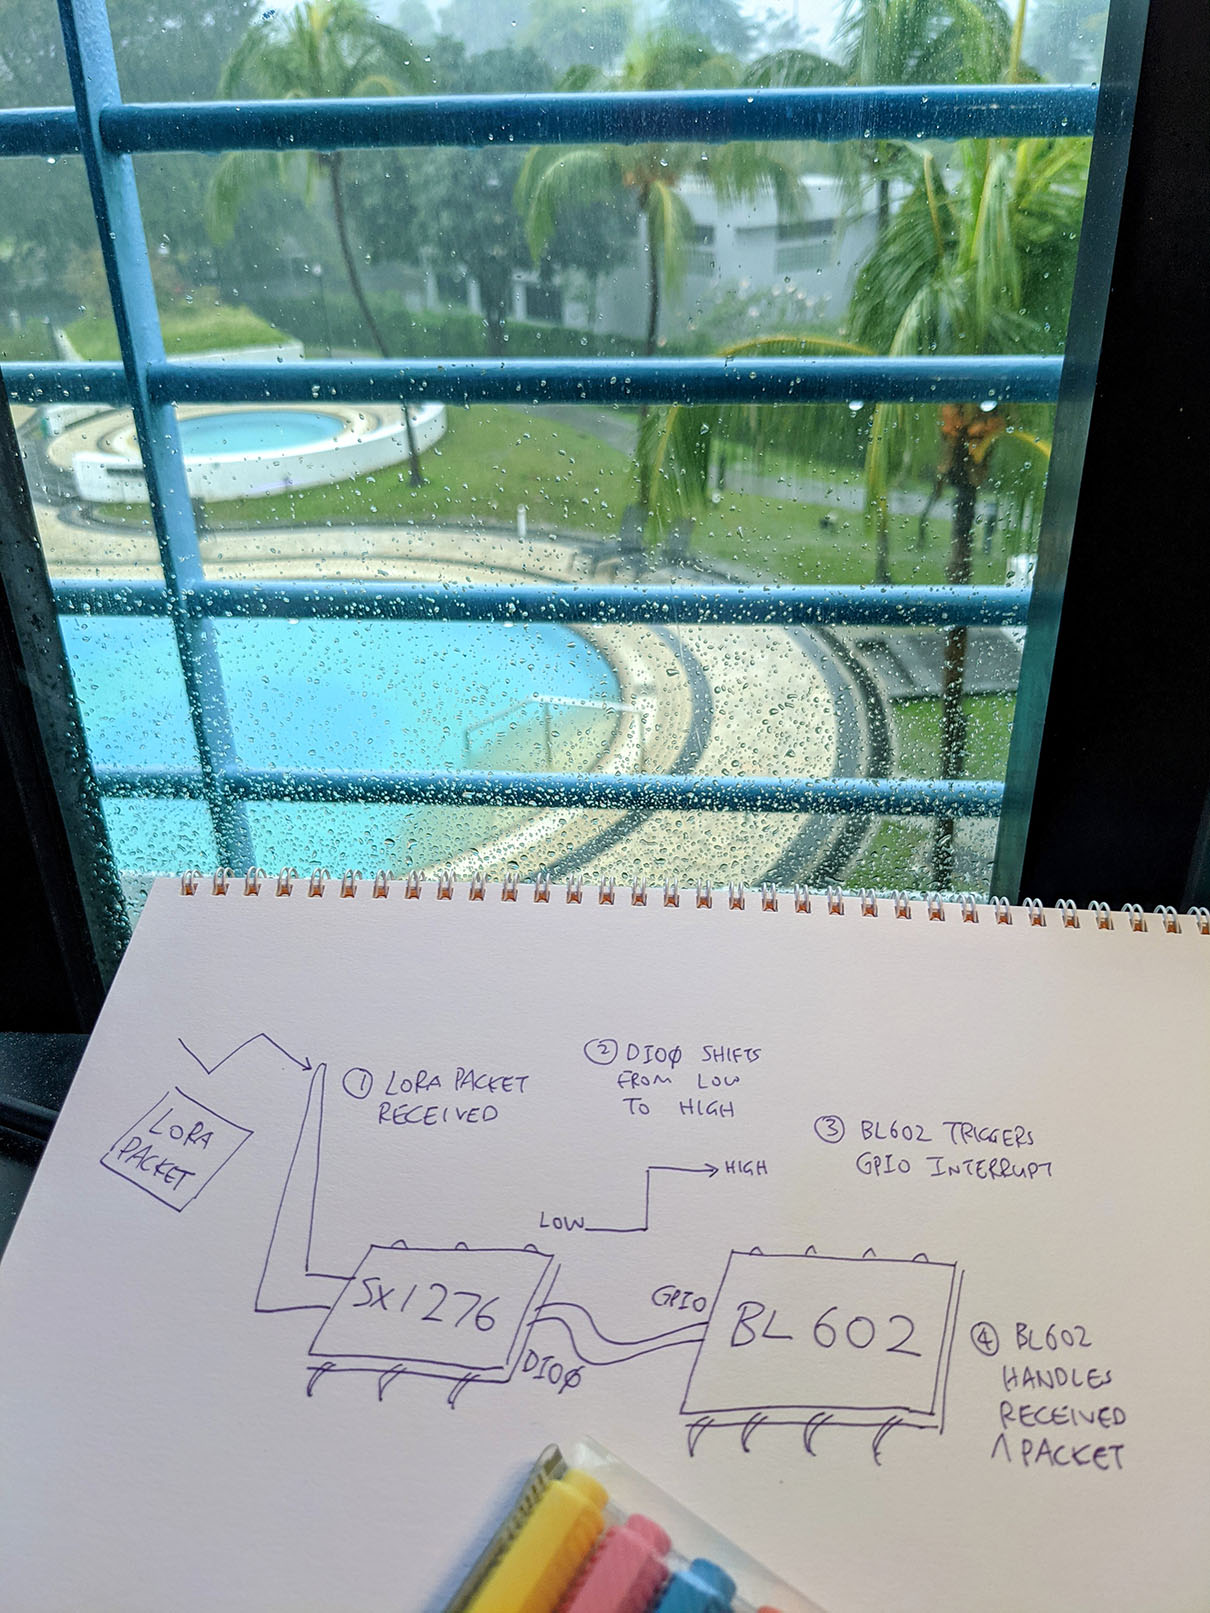 ① LORA PACKET
RECEIVED
② DIO0 SHIFTS
FROM LOW
TO HIGH
③ BL602 TRIGGERS
GPIO INTERRUPT
LORA
PACKET
HIGH
LOW
SX1276
DIO0
GPIO
BL602
④ BL602
HANDLES
RECEIVED
PACKET